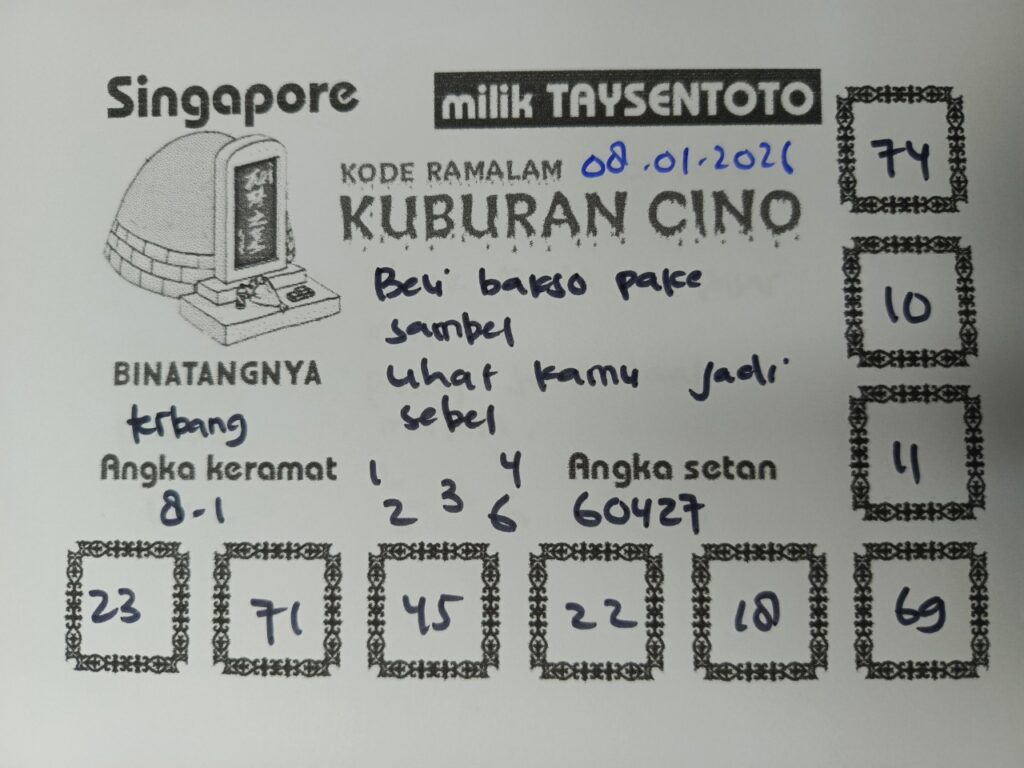 Singapore
milik TAYSENTOTO
KODE RAMALAM 08.01.2026
KUBURAN CINO
Beli bakso pake
sambel
lihat kamu jadi
sebel
BINATANGNYA
terbang
Angka keramat
8-1
1 4
2 3 6
Angka setan
60427
74
10
11
23 71 45 22 18 69